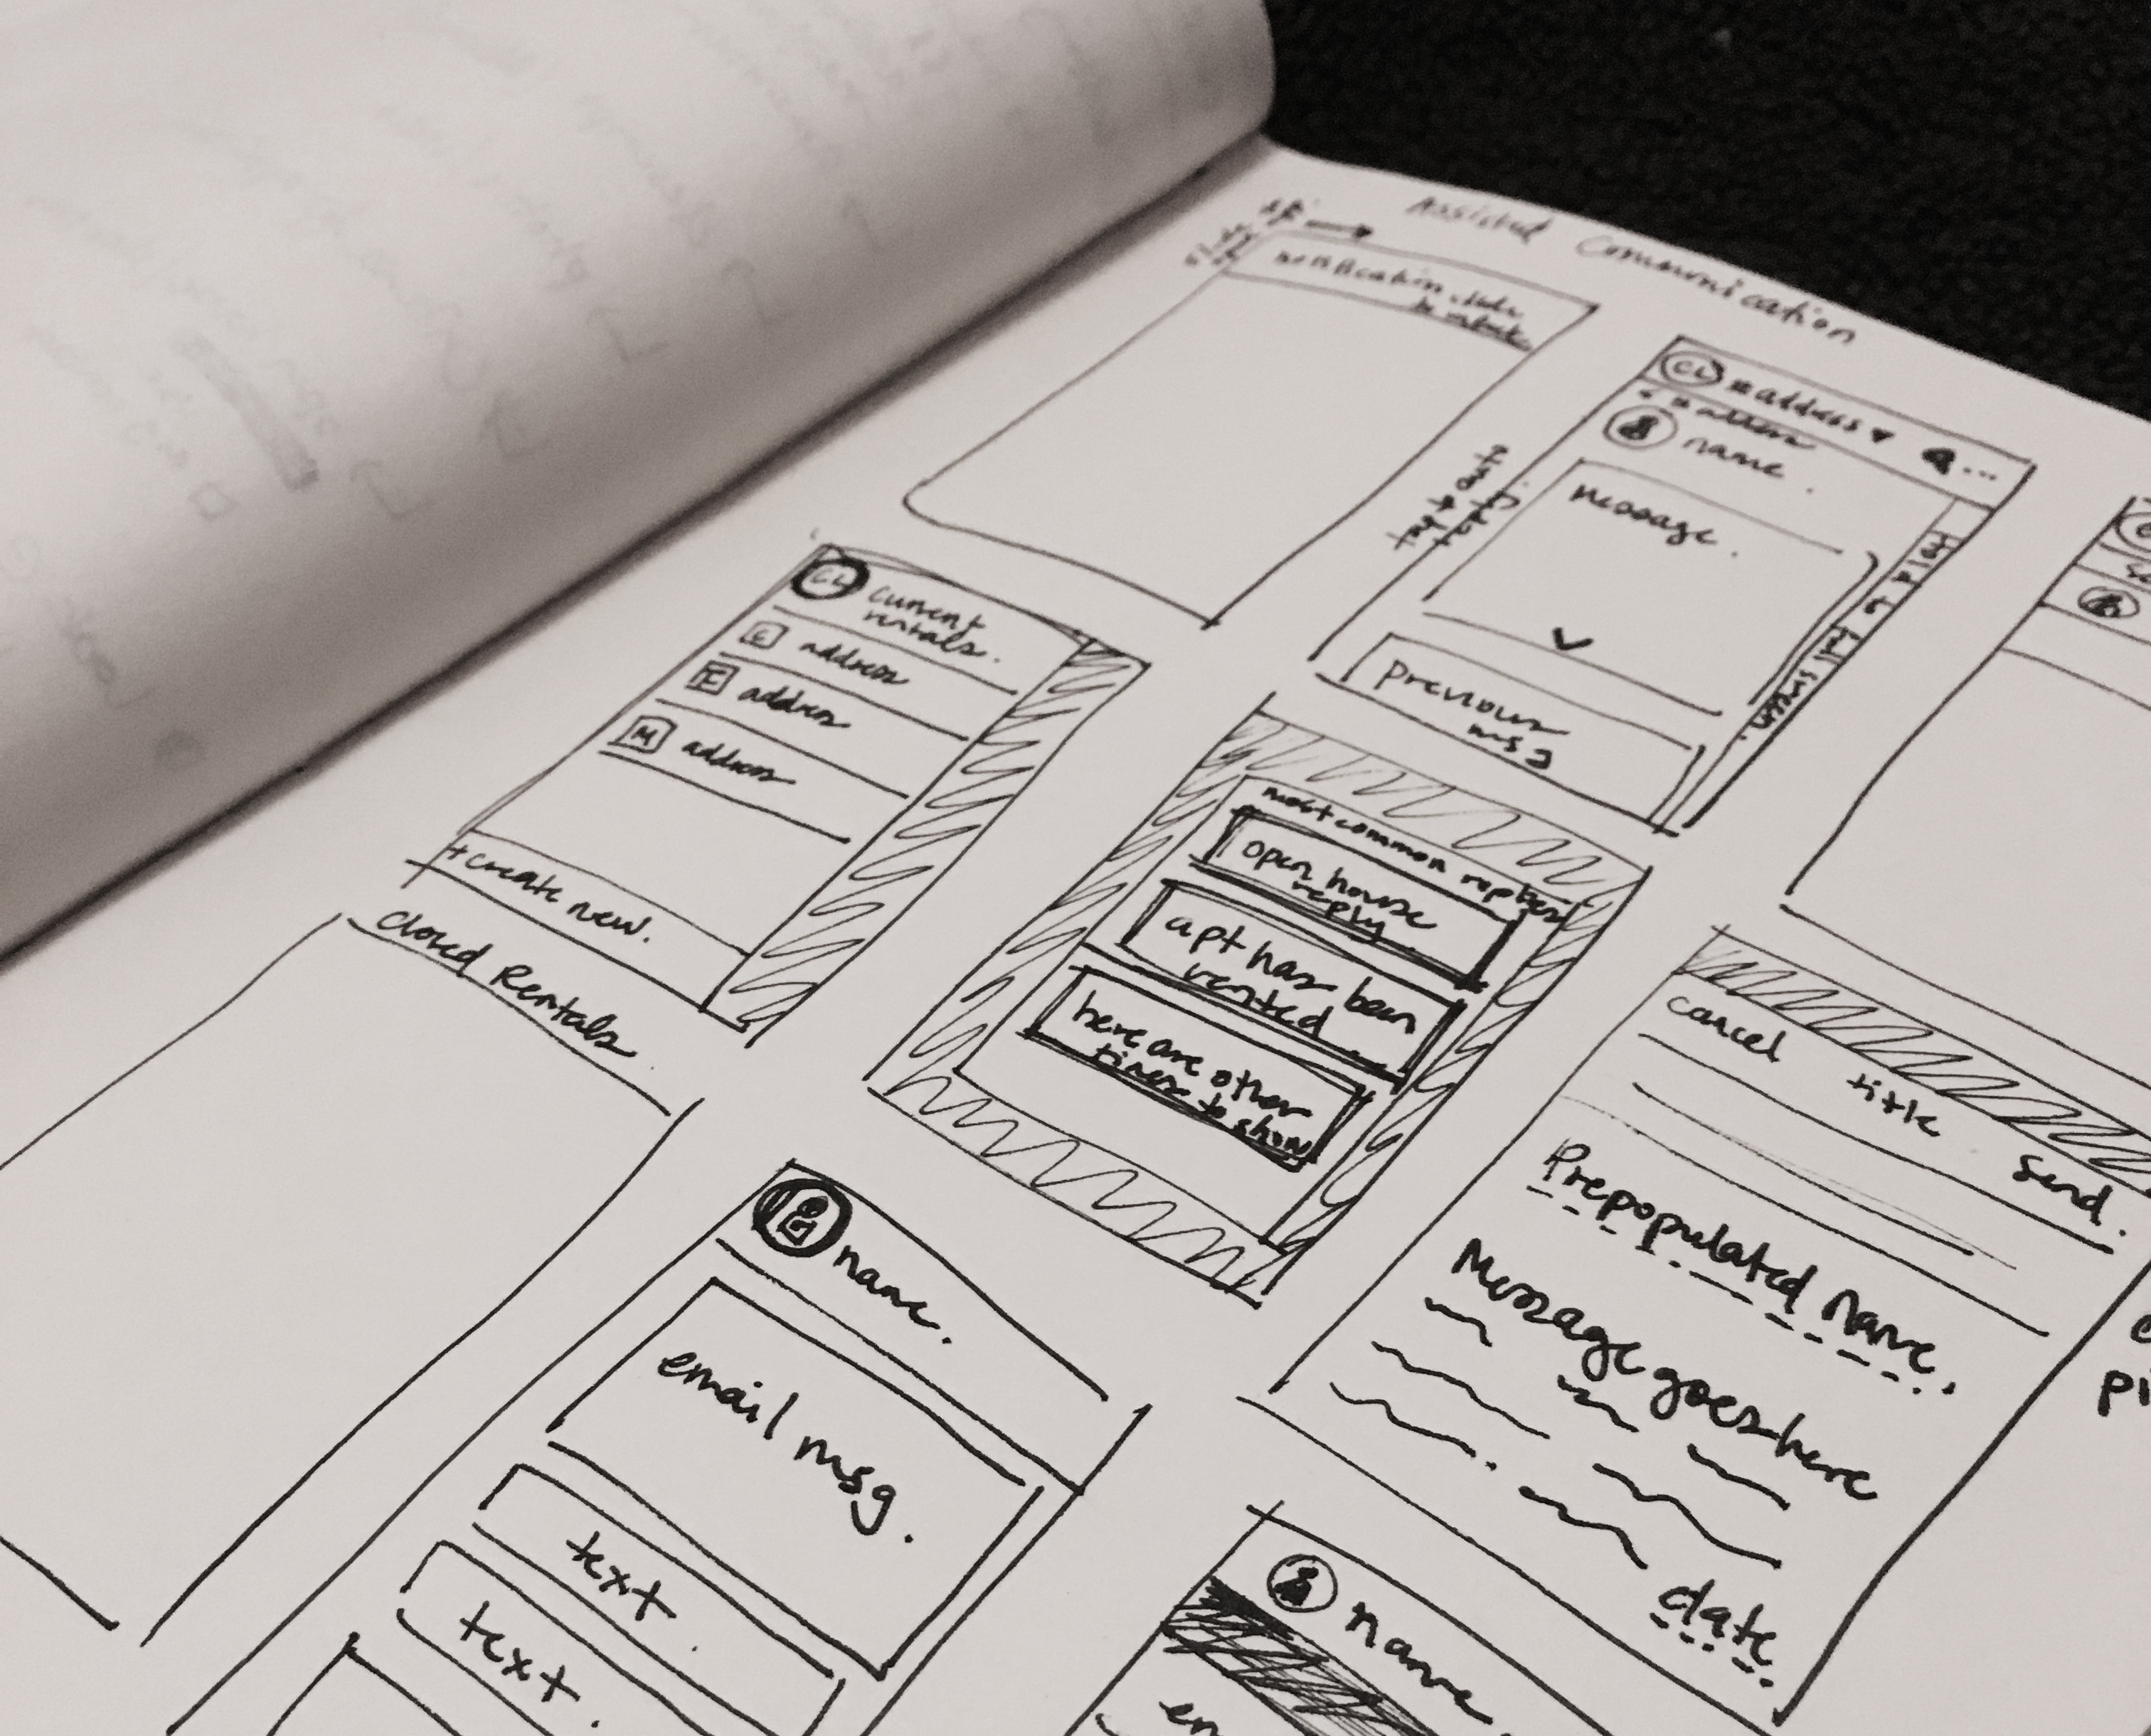 Assisted Communication
notification slide
to unlock
CL address
address
name.
message.
Previous
msg
tap to auto
reply
CL current
rentals.
C address
E address
M address
+ create new.
Closed Rentals
most common replies
open house
reply
apt has been
rented
here are other
times to show
cancel title send.
Prepopulated name,
Message goes here
date
name.
email msg.
text.
text.
name.